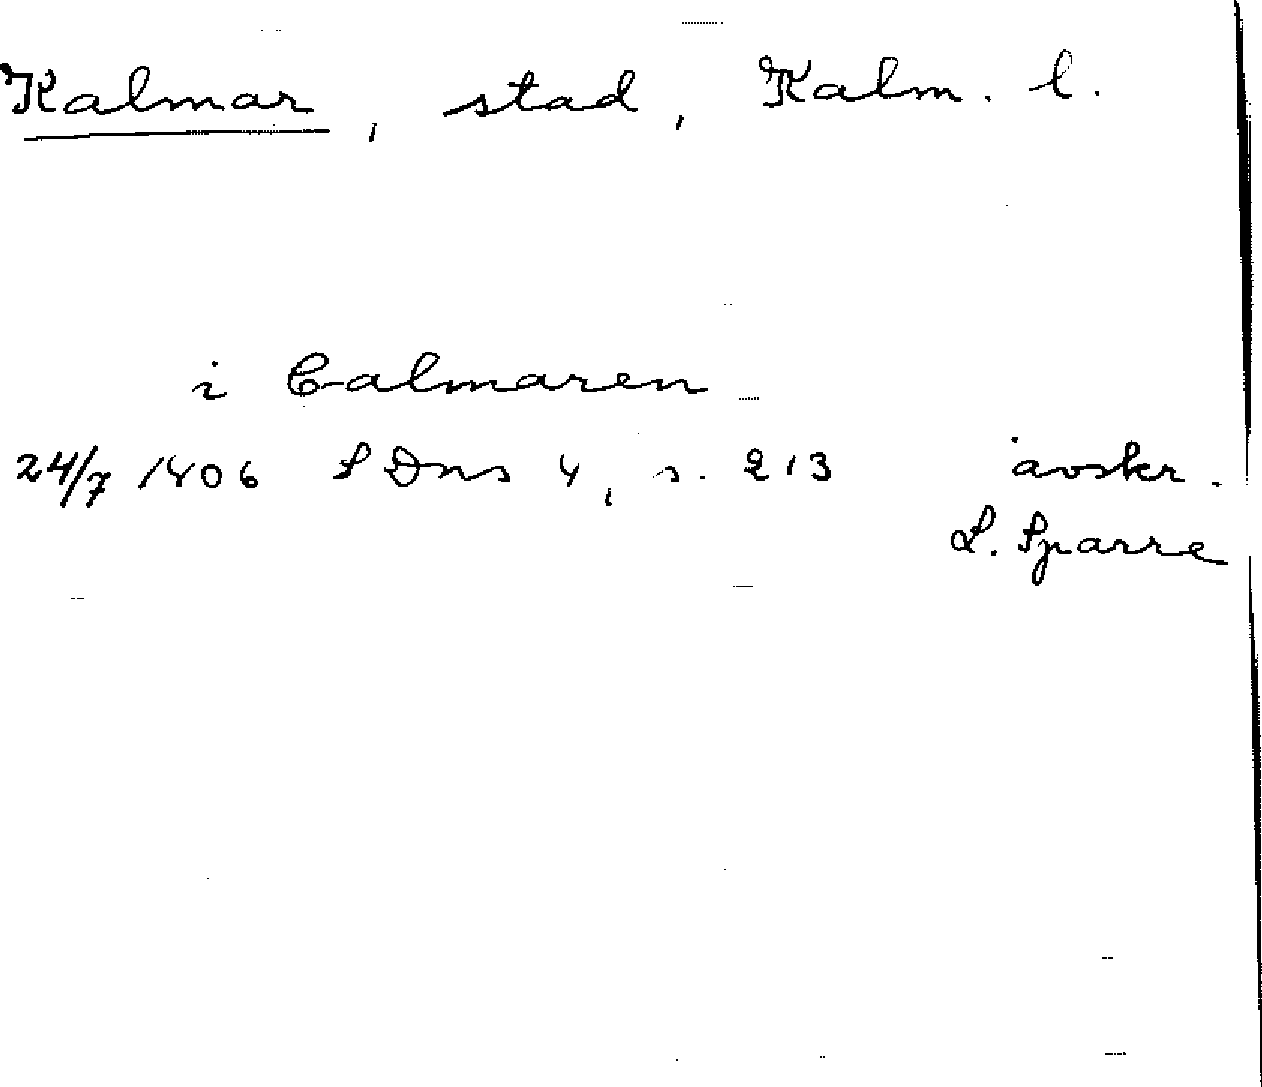 Kalmar, stad, Kalm. l.
i Calmaren
24/7 1406 SDns 4, s. 213 avskr.
L. Sparre